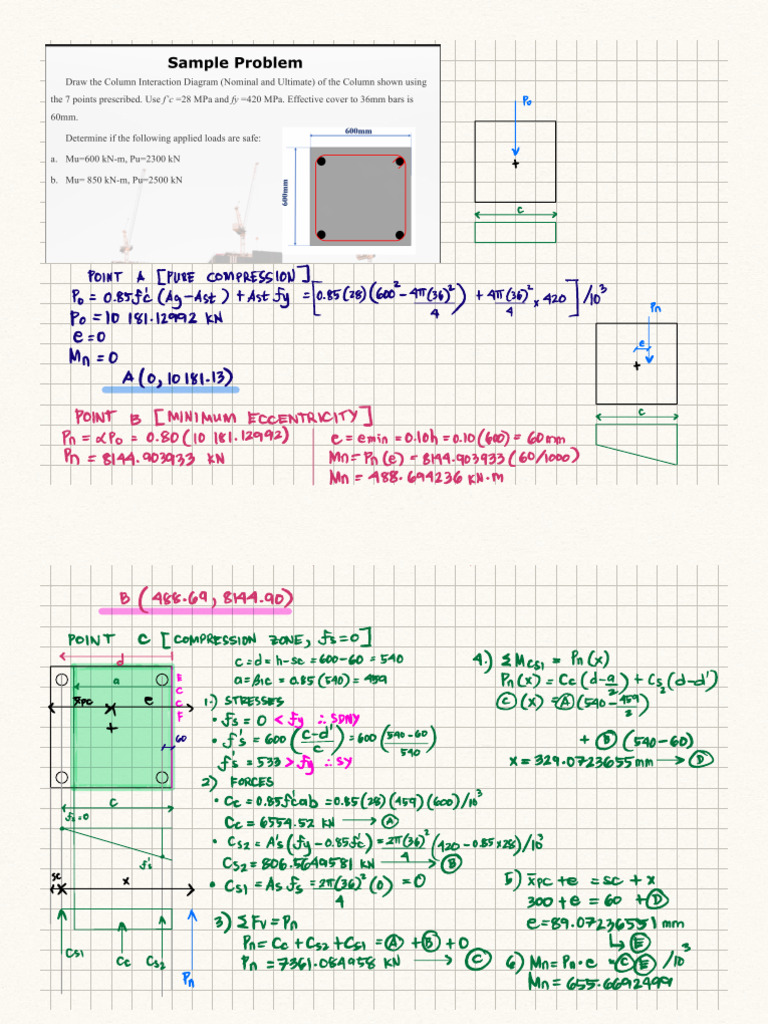 Sample Problem
Draw the Column Interaction Diagram (Nominal and Ultimate) of the Column shown using
the 7 points prescribed. Use f'c =28 MPa and fy =420 MPa. Effective cover to 36mm bars is
60mm.
Determine if the following applied loads are safe:
a. Mu=600 kN-m, Pu=2300 kN
b. Mu= 850 kN-m, Pu=2500 kN
600mm
600mm
Po
c
POINT A [PURE COMPRESSION]
Po = 0.85f'c (Ag-Ast) + Ast fy = [0.85(28)(600² - 4π(36)²/4) + 4π(36)²/4 × 420] /10³
Po = 10 181.12992 KN
e = 0
Mn = 0
A (0, 10 181.13)
Pn
e
c
POINT B [MINIMUM ECCENTRICITY]
Pn = αPo = 0.80 (10 181.12992)
Pn = 8144.903933 KN
e = emin = 0.10h = 0.10(600) = 60mm
Mn = Pn(e) = 8144.903933 (60/1000)
Mn = 488.694236 KN·m
B (488.69, 8144.90)
POINT C [COMPRESSION ZONE, fs=0]
d
a
x̄pc
e
ECCF
60
c
fs=0
f's
sc
x
Cs1
Cc
Cs2
Pn
c = d = h-sc = 600-60 = 540
a = β1c = 0.85 (540) = 459
1.) STRESSES
• fs = 0 < fy ∴ SDNY
• f's = 600 (c-d'/c) = 600 (540-60/540)
f's = 533 > fy ∴ SY
2) FORCES
• Cc = 0.85f'cab = 0.85(28)(459)(600)/10³
Cc = 6554.52 KN → A
• Cs2 = A's (fy - 0.85f'c) = 2π(36)²/4 (420 - 0.85×28)/10³
Cs2 = 806.5649581 KN → B
• Cs1 = As fs = 2π(36)²/4 (0) = 0
3) ΣFv = Pn
Pn = Cc + Cs2 + Cs1 = A + B + 0
Pn = 7361.084958 KN → C
4.) ΣMcs1 = Pn(x)
Pn(x) = Cc (d - a/2) + Cs2 (d-d')
C (x) = A (540 - 459/2)
+ B (540-60)
x = 329.0723655 mm → D
5) x̄pc + e = sc + x
300 + e = 60 + D
e = 89.07236551 mm
↳ E
6) Mn = Pn·e = C E /10³
Mn = 655.6692499